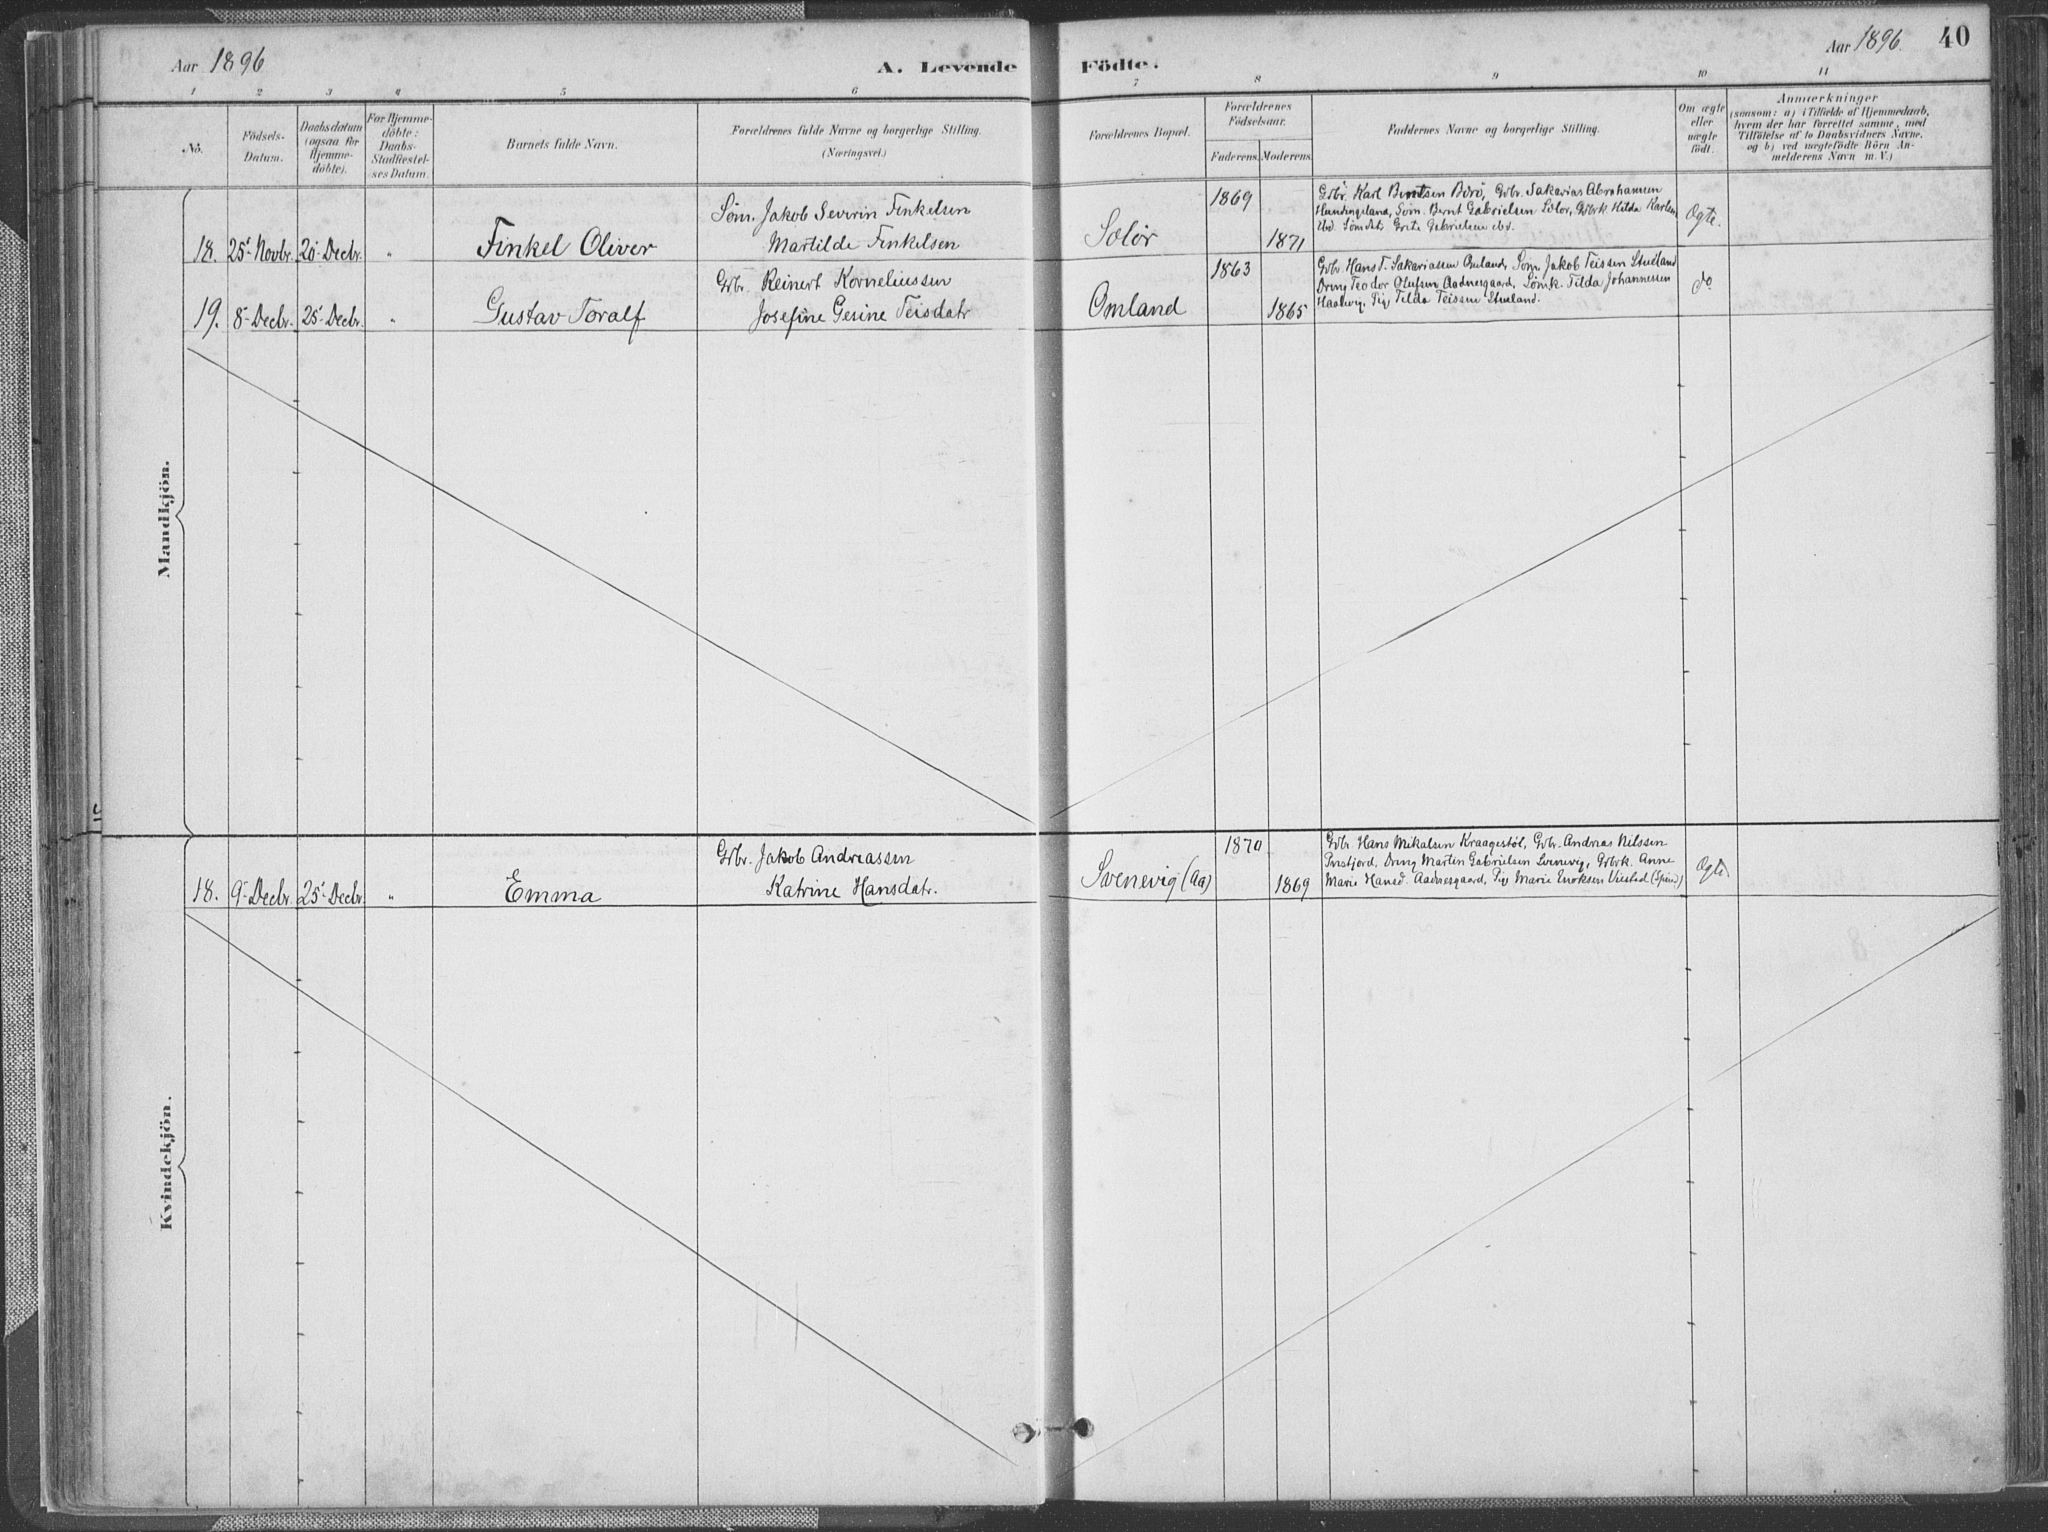 Aar 1896
A. Levende Födte.
Aar 1896.
40
1 2 3 4 5 6 7 8 9 10 11
No.
Födsels-
Datum.
Daabsdatum
(ogsaa for
Hjemme-
döbte).
For Hjemme-
döbte:
Daabs-
Stadfæstel-
ses Datum.
Barnets fulde Navn.
Forældrenes fulde Navne og borgerlige Stilling.
(Næringsvei.)
Forældrenes Bopæl.
Forældrenes
Födselsaar.
Faderens.
Moderens.
Faddernes Navne og borgerlige Stilling.
Om ægte
eller
uægte
födt.
Anmærkninger
(saasom: a) i Tilfælde af Hjemmedaab,
hvem der har forrettet samme, med
Tilföielse af to Daabsvidners Navne,
og b) ved uægtefödte Börn An-
melderens Navn m. V.)
Mandkjön.
18. 25' Novbr. 20' Decbr. " Finkel Oliver
Søm. Jakob Severin Finkelsen
Martilde Finkelsen
Solör
1869
1871
Gbr. Karl Berntsen Borö, Gbr. Sakarias Abrahamsen
Hundingsland, Søm. Bernt Gabrielsen Solör, Gbrk Hilda Karlsen
ibd. Grete Gabrielsen ibd.
Ægte.
19. 8' Decbr. 25' Decbr. " Gustav Toralf
Gbr. Reinert Korneliussen
Josefine Gesine Teisdatr
Omland
1863
1865
Gbr. Hans T. Sakariassen Omland, Søm. Jakob Teissen Stueland
Dreng Teodor Olufsen Aadnesgaard, Sømk. Tilda Johannessen
Haaløvig, Pig. Tilda Teissen Stueland.
do
Kvindekjön.
18. 9' Decbr. 25' Decbr. " Emma
Gbr. Jakob Andreassen
Katrine Hansdatr.
Svenevig (Aa)
1870
1869
Gbr Hans Mikalsen Kraagestöl, Gbr. Andreas Nilssen
Dreng Martin Gabrielsen Svenevig, Gbrk. Anne
Marie Hansd. Aadnesgaard, Pige Marie Enoksen Viestad (Spind)
Ægte.